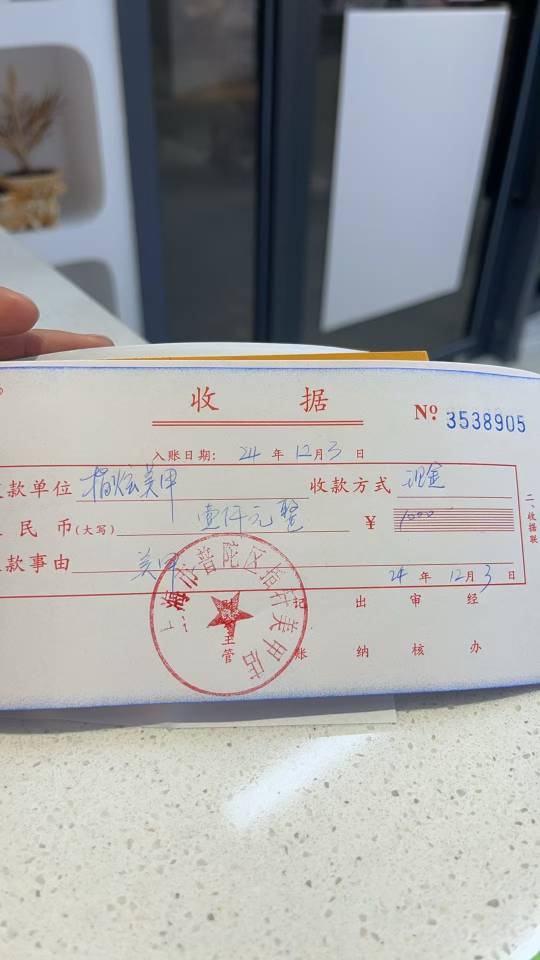 收 据
Nº 3538905
入账日期: 24 年 12 月 3 日
款单位 指炫美甲 收款方式 现金
民 币(大写) 壹仟元整 ¥ 1000
款事由 美甲
24 年 12 月 3 日
主管 记账 出纳 审核 经办
二、收据联
上海市普陀区指轩美甲店